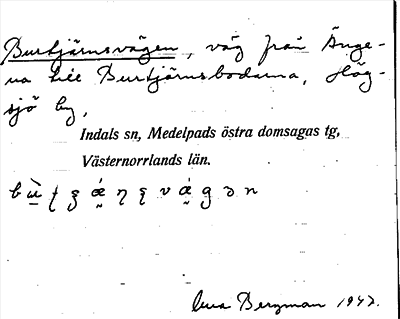 Burtjärnsvägen, väg från Änge-
na till Burtjärnsbodarna, Hög-
sjö by,
Indals sn, Medelpads östra domsagas tg,
Västernorrlands län.
Bergman 1947.